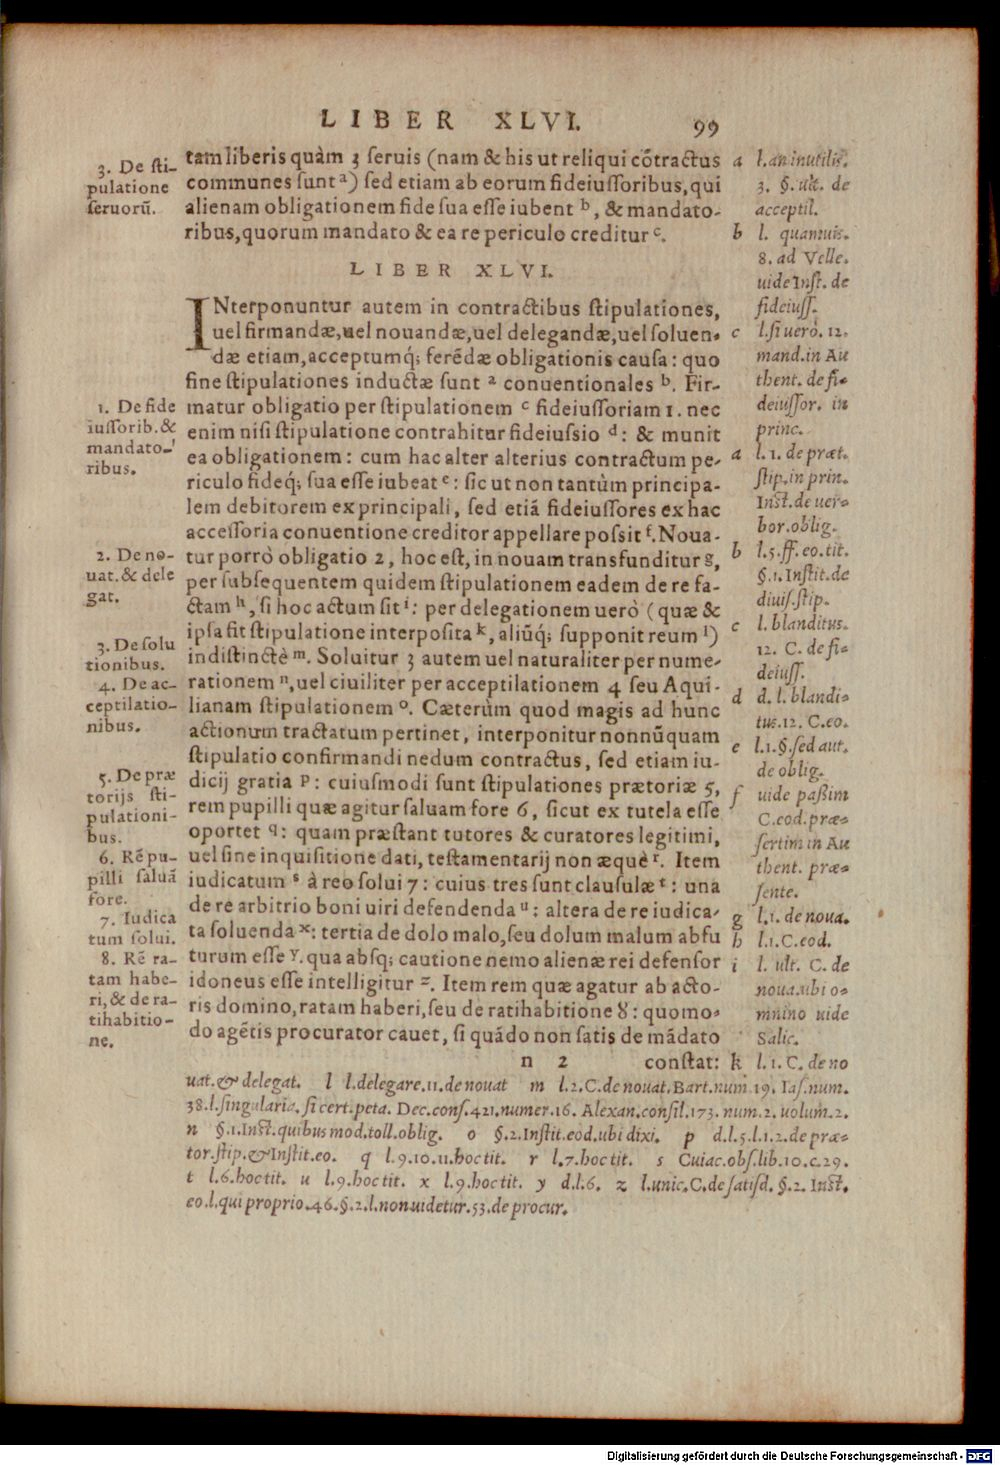 LIBER XLVI. 99
3. De sti-
pulatione
seruorū.
tam liberis quàm 3 seruis (nam & his ut reliqui cōtractus
communes sunt a) sed etiam ab eorum fideiussoribus, qui
alienam obligationem fide sua esse iubent b, & mandato-
ribus, quorum mandato & ea re periculo creditur c.
LIBER XLVI.
INterponuntur autem in contractibus stipulationes,
uel firmandæ, uel nouandæ, uel delegandæ, uel soluen-
dæ etiam, acceptumq́; ferēdæ obligationis causa: quo
fine stipulationes inductæ sunt a conuentionales b. Fir-
matur obligatio per stipulationem c fideiussoriam 1. nec
enim nisi stipulatione contrahitur fideiussio d: & munit
ea obligationem: cum hac alter alterius contractum pe-
riculo fideq́; sua esse iubeat e: sic ut non tantùm principa-
lem debitorem ex principali, sed etiā fideiussores ex hac
accessoria conuentione creditor appellare possit f. Noua-
tur porrò obligatio 2, hoc est, in nouam transfunditur g,
per subsequentem quidem stipulationem eadem de re fa-
ctam h, si hoc actum sit i: per delegationem uerò (quæ &
ipsa fit stipulatione interposita k, aliūq́; supponit reum l)
indistinctè m. Soluitur 3 autem uel naturaliter per nume-
rationem n, uel ciuiliter per acceptilationem 4 seu Aqui-
lianam stipulationem o. Cæterùm quod magis ad hunc
actionum tractatum pertinet, interponitur nonnūquam
stipulatio confirmandi nedum contractus, sed etiam iu-
dicij gratia p: cuiusmodi sunt stipulationes prætoriæ 5,
rem pupilli quæ agitur saluam fore 6, sicut ex tutela esse
oportet q: quam præstant tutores & curatores legitimi,
uel sine inquisitione dati, testamentarij non æquè r. Item
iudicatum s à reo solui 7: cuius tres sunt clausulæ t: una
de re arbitrio boni uiri defendenda u: altera de re iudica-
ta soluenda x: tertia de dolo malo, seu dolum malum abfu
turum esse y. qua absq; cautione nemo alienæ rei defensor
idoneus esse intelligitur z. Item rem quæ agatur ab acto-
ris domino, ratam haberi, seu de ratihabitione 8: quomo-
do agētis procurator cauet, si quādo non satis de mādato
n 2 constat:
1. De fide
iussorib. &
mandato-
ribus.
2. De no-
uat. & dele
gat.
3. De solu
tionibus.
4. De ac-
ceptilatio-
nibus.
5. De præ
torijs sti-
pulationi-
bus.
6. Rē pu-
pilli saluā
fore.
7. Iudica
tum solui.
8. Rē ra-
tam habe-
ri, & de ra-
tihabitio-
ne.
a l. an inutilis.
3. §. ult. de
acceptil.
b l. quamuis.
8. ad Velle.
uide Inst. de
fideiuss.
c l. si uerò. 12.
mand. in Au
thent. de fi-
deiussor. in
princ.
a l. 1. de præt.
stip. in prin.
Inst. de uer-
bor. oblig.
b l. 5. ff. eo. tit.
§. 1. Instit. de
diuis. stip.
c l. blanditus.
12. C. de fi-
deiuss.
d d. l. blandi-
tus. 12. C. eo.
e l. 1. §. sed aut.
de oblig.
f uide paßim
C. eod. præ-
sertim in Au
thent. præ-
sente.
g l. 1. de noua.
h l. 1. C. eod.
i l. ult. C. de
noua. ubi o-
mnino uide
Salic.
k l. 1. C. de no
uat. & delegat. l l. delegare. 11. de nouat m l. 2. C. de nouat. Bart. num. 19. Ias. num.
38. l. singularia. si cert. peta. Dec. cons. 421. numer. 16. Alexan. consil. 173. num. 2. uolum. 2.
n §. 1. Inst. quibus mod. toll. oblig. o §. 2. Instit. eod. ubi dixi. p d. l. 5. l. 1. 2. de præ-
tor. stip. & Instit. eo. q l. 9. 10. 11. hoc tit. r l. 7. hoc tit. s Cuiac. obs. lib. 10. c. 29.
t l. 6. hoc tit. u l. 9. hoc tit. x l. 9. hoc tit. y d. l. 6. z l. unic. C. de satisd. §. 2. Inst.
eo. l. qui proprio. 46. §. 2. l. non uidetur. 53. de procur.
Digitalisierung gefördert durch die Deutsche Forschungsgemeinschaft - DFG